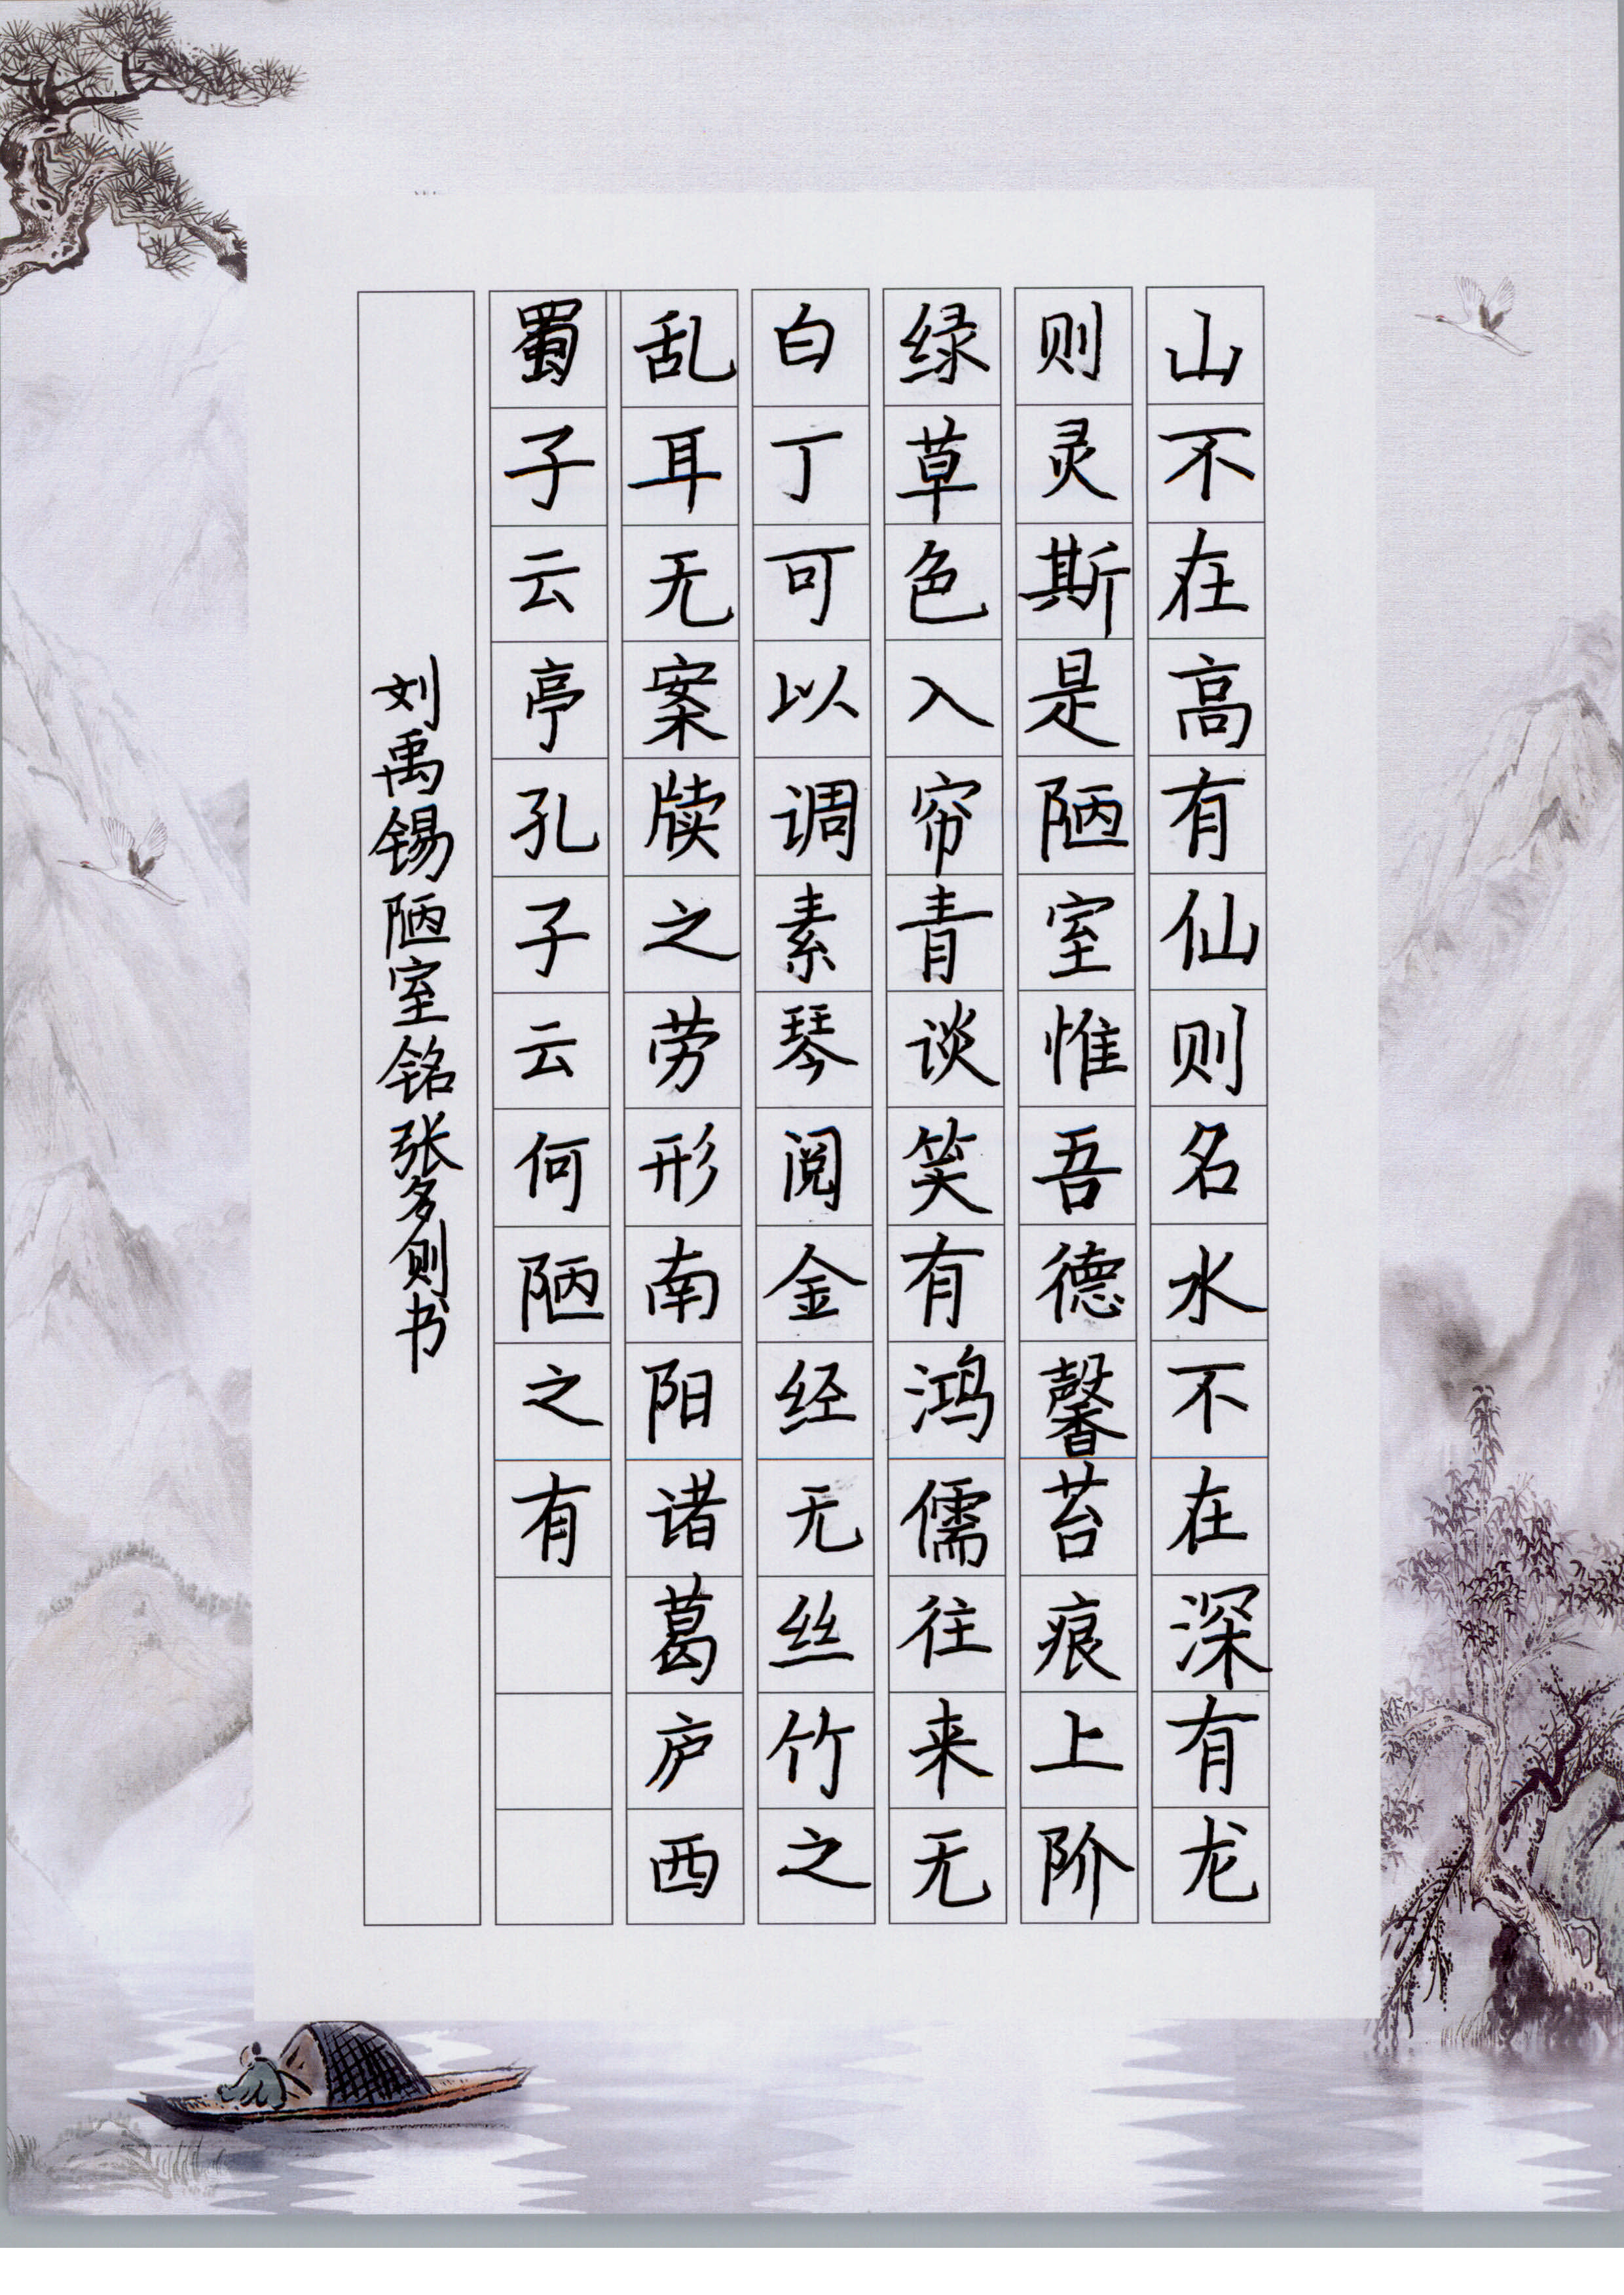 山不在高有仙则名水不在深有龙
则灵斯是陋室惟吾德馨苔痕上阶
绿草色入帘青谈笑有鸿儒往来无
白丁可以调素琴阅金经无丝竹之
乱耳无案牍之劳形南阳诸葛庐西
蜀子云亭孔子云何陋之有
刘禹锡陋室铭张多则书